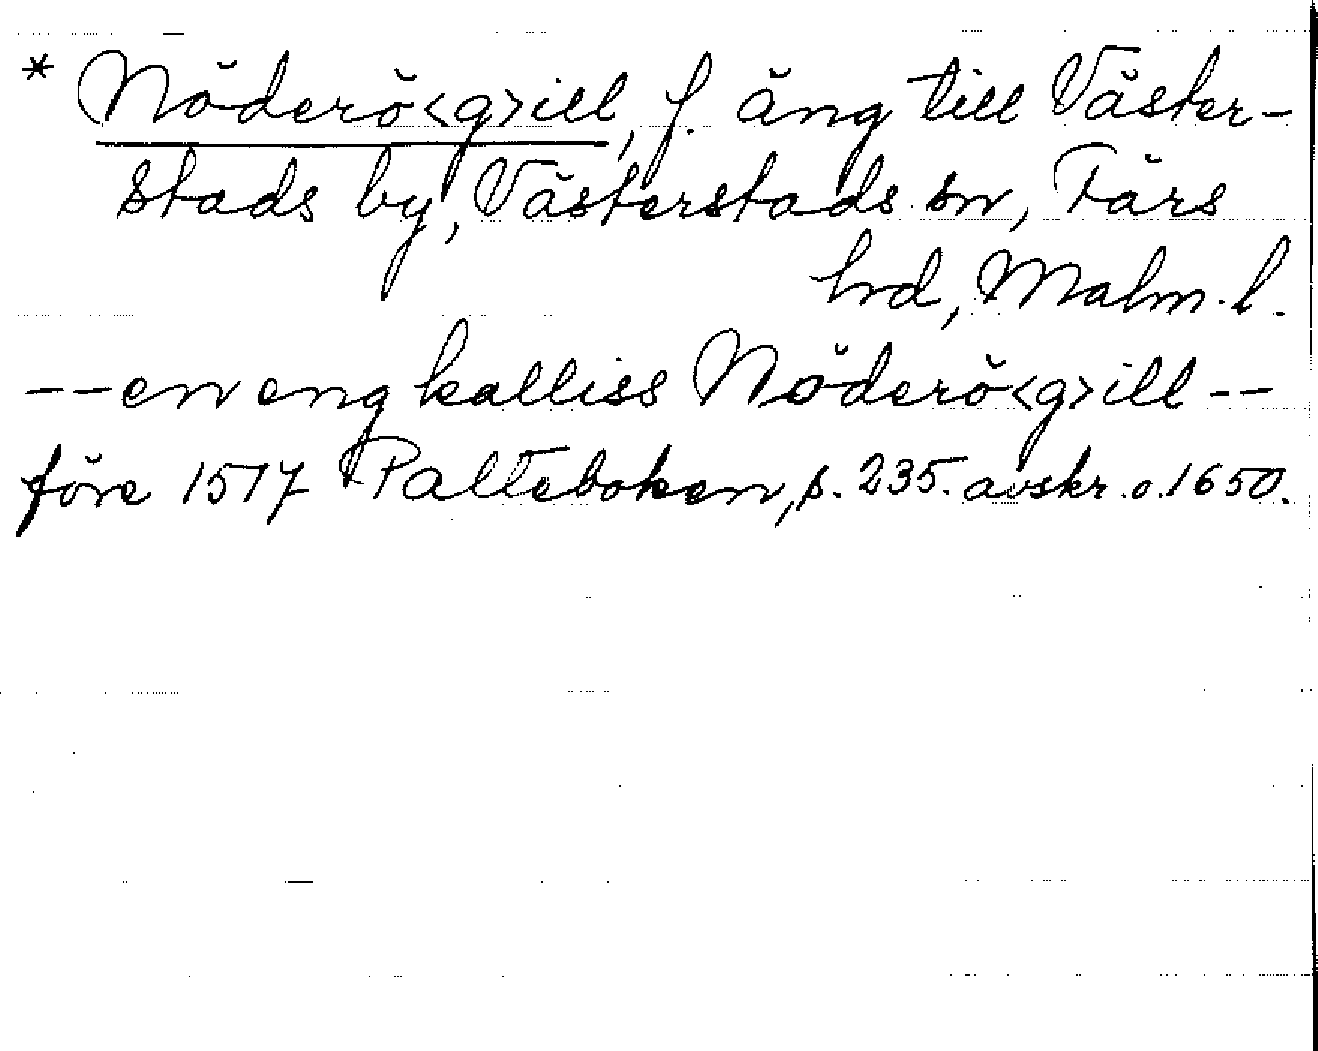 * Nöderö<g>ill, f. äng till Väster-
stads by, Västerstads sn, Färs
hrd, Malm. l.
-- en eng kalliss Nöderö<g>ill --
före 1517 Palteboken, s. 235. avskr. o. 1650.